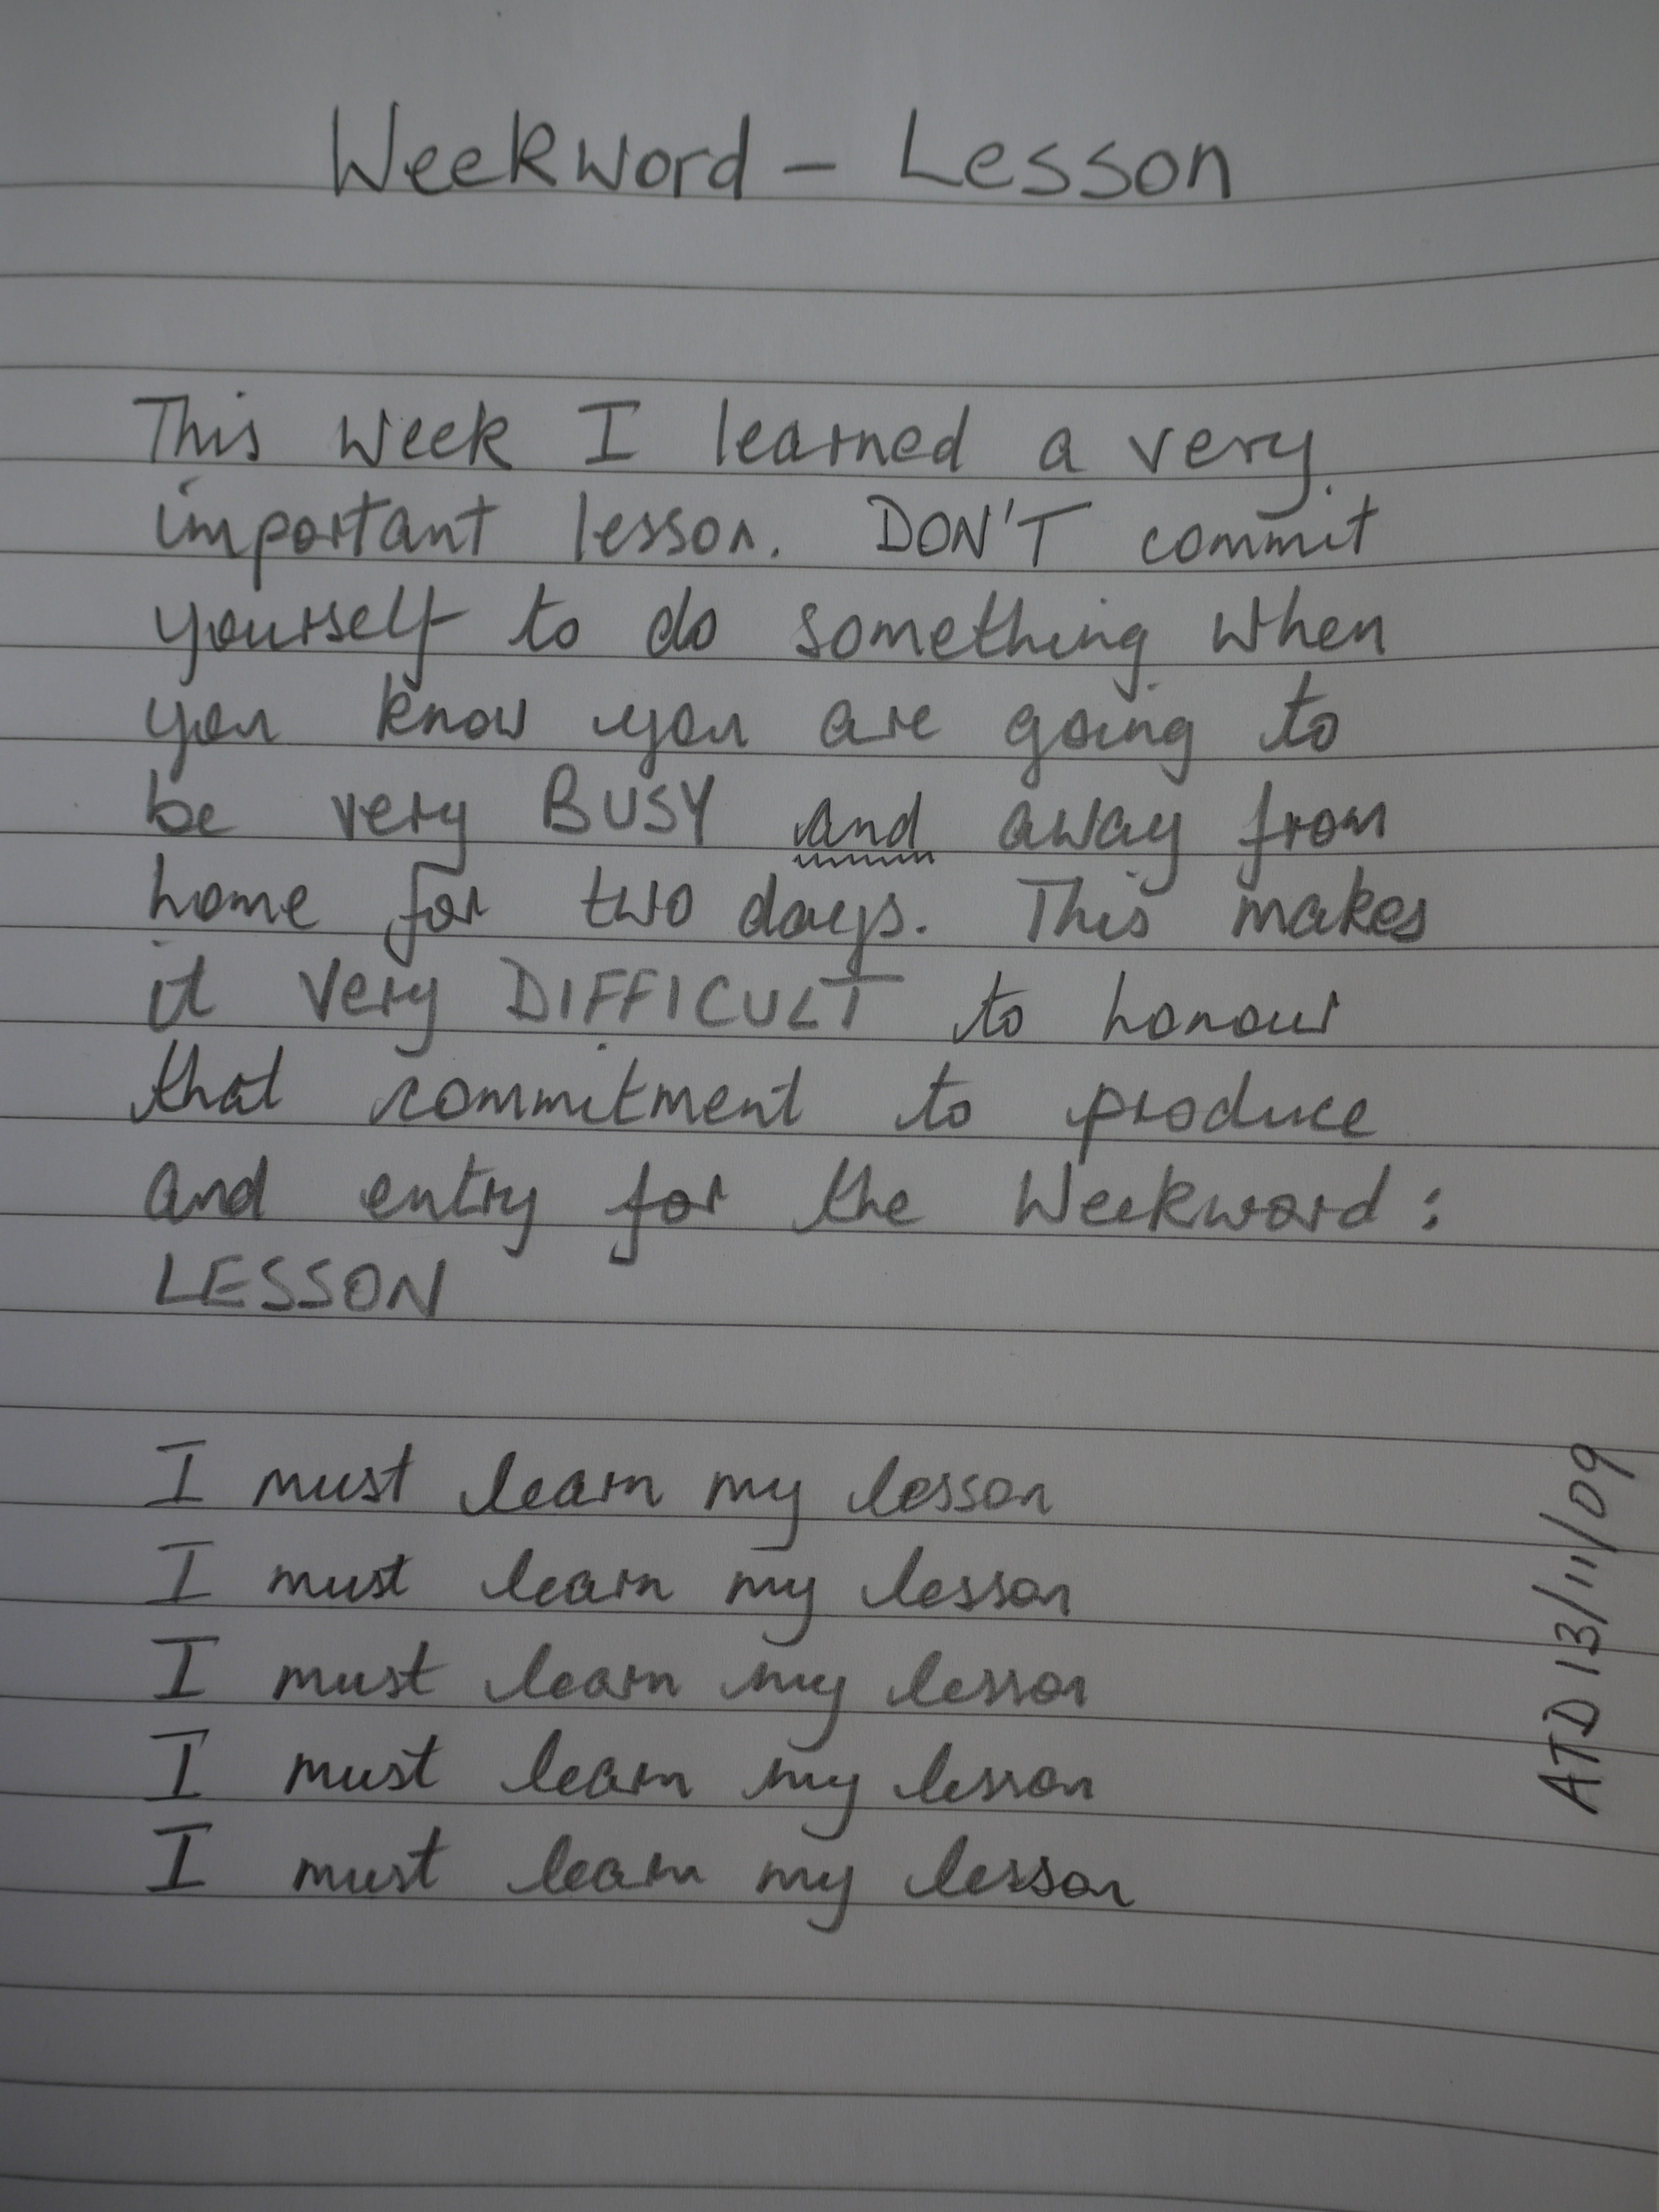 Weekword - Lesson
This week I learned a very
important lesson. DON'T commit
yourself to do something when
you know you are going to
be very BUSY and away from
home for two days. This makes
it very DIFFICULT to honour
that commitment to produce
and entry for the Weekword:
LESSON
I must learn my lesson
I must learn my lesson
I must learn my lesson
I must learn my lesson
I must learn my lesson
ATD 13/11/09